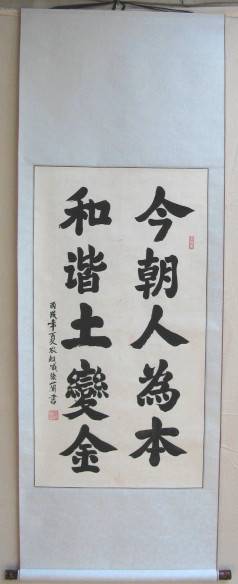 今朝人為本
和谐土變金
丙戌年夏
書